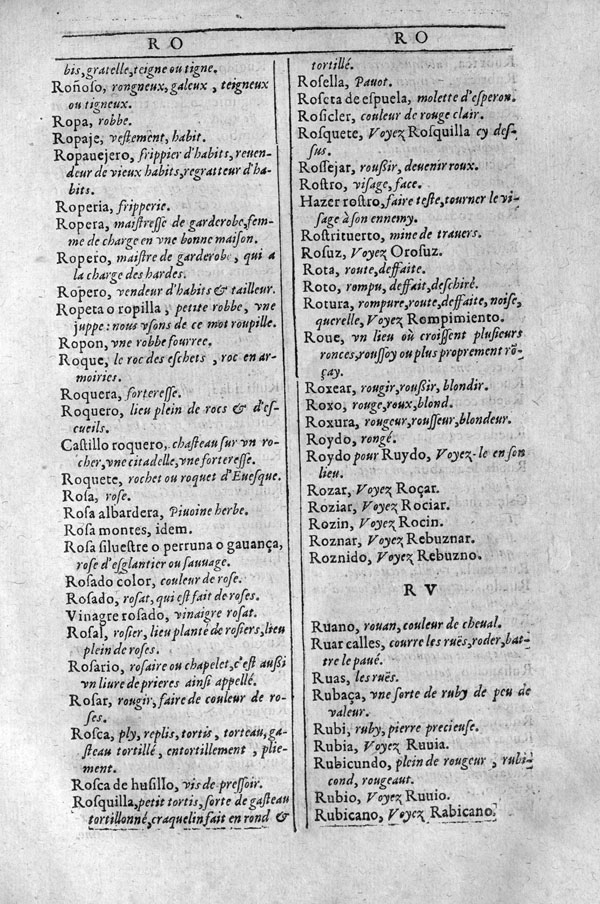 R O
bis, gratelle, teigne ou tigne.
Roñoso, rongneux, galeux, teigneux
ou tigneux.
Ropa, robbe.
Ropaje, veſtement, habit.
Ropauejero, frippier d'habits, reuen-
deur de vieux habits, regratteur d'ha-
bits.
Roperia, fripperie.
Ropera, maiſtreſſe de garderobe, fem-
me de charge en vne bonne maiſon.
Ropero, maiſtre de garderobe, qui a
la charge des hardes.
Ropero, vendeur d'habits & tailleur.
Ropeta o ropilla, petite robbe, vne
juppe: nous vſons de ce mot roupille.
Ropon, vne robbe fourree.
Roque, le roc des eſchets, roc en ar-
moiries.
Roquera, forterеſſe.
Roquero, lieu plein de rocs & d'eſ-
cueils.
Caſtillo roquero, chaſteau ſur vn ro-
cher, vne citadelle, vne fortereſſe.
Roquete, rochet ou roquet d'Eueſque.
Roſa, roſe.
Roſa albardera, Piuoine herbe.
Roſa montes, idem.
Roſa silueſtre o perruna o gauança,
roſe d'eſglantier ou ſauuage.
Roſado color, couleur de roſe.
Roſado, roſat, qui eſt fait de roſes.
Vinagre roſado, vinaigre roſat.
Roſal, roſier, lieu planté de roſiers, lieu
plein de roſes.
Roſario, roſaire ou chapelet, c'eſt auſſi
vn liure de prieres ainſi appellé.
Roſar, rougir, faire de couleur de ro-
ſes.
Roſca, ply, replis, tortis, torteau, ga-
ſteau tortillé, entortillement, plie-
ment.
Roſca de huſillo, vis de preſſoir.
Roſquilla, petit tortis, ſorte de gaſteau
tortillonné, craquelin fait en rond &
R O
tortillé.
Roſella, Pauot.
Roſeta de eſpuela, molette d'eſperon.
Roſicler, couleur de rouge clair.
Roſquete, Voyez Roſquilla cy deſ-
ſus.
Roſſejar, rouſſir, deuenir roux.
Roſtro, viſage, face.
Hazer roſtro, faire teſte, tourner le vi-
ſage à ſon ennemy.
Roſtrituerto, mine de trauers.
Roſuz, Voyez Oroſuz.
Rota, route, deffaite.
Roto, rompu, deffait, deſchiré.
Rotura, rompure, route, deffaite, noiſe,
querelle, Voyez Rompimiento.
Roue, vn lieu où croiſſent pluſieurs
ronces, rouſſoy ou plus proprement rō-
çay.
Roxear, rougir, rouſſir, blondir.
Roxo, rouge, roux, blond.
Roxura, rougeur, rouſſeur, blondeur.
Roydo, rongé.
Roydo pour Ruydo, Voyez-le en ſon
lieu.
Rozar, Voyez Roçar.
Roziar, Voyez Rociar.
Rozin, Voyez Rocin.
Roznar, Voyez Rebuznar.
Roznido, Voyez Rebuzno.
R V
Ruano, rouan, couleur de cheual.
Ruar calles, courre les ruës, roder, bat-
tre le paué.
Ruas, les ruës.
Rubaça, vne ſorte de ruby de peu de
valeur.
Rubi, ruby, pierre precieuſe.
Rubia, Voyez Ruuia.
Rubicundo, plein de rougeur, rubi-
cond, rougeaut.
Rubio, Voyez Ruuio.
Rubicano, Voyez Rabicano.